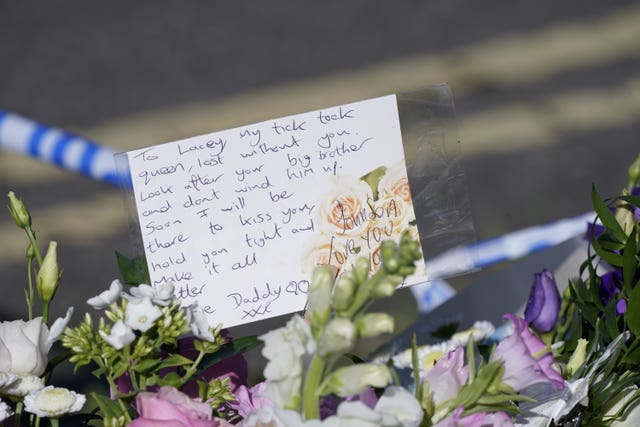 To Lacey my tick tock
queen, lost without you.
Look after your big brother
and dont wind him up.
Soon I will be
there to kiss you
hold you tight and
make it all
Daddy
xxx
LOVE YOU